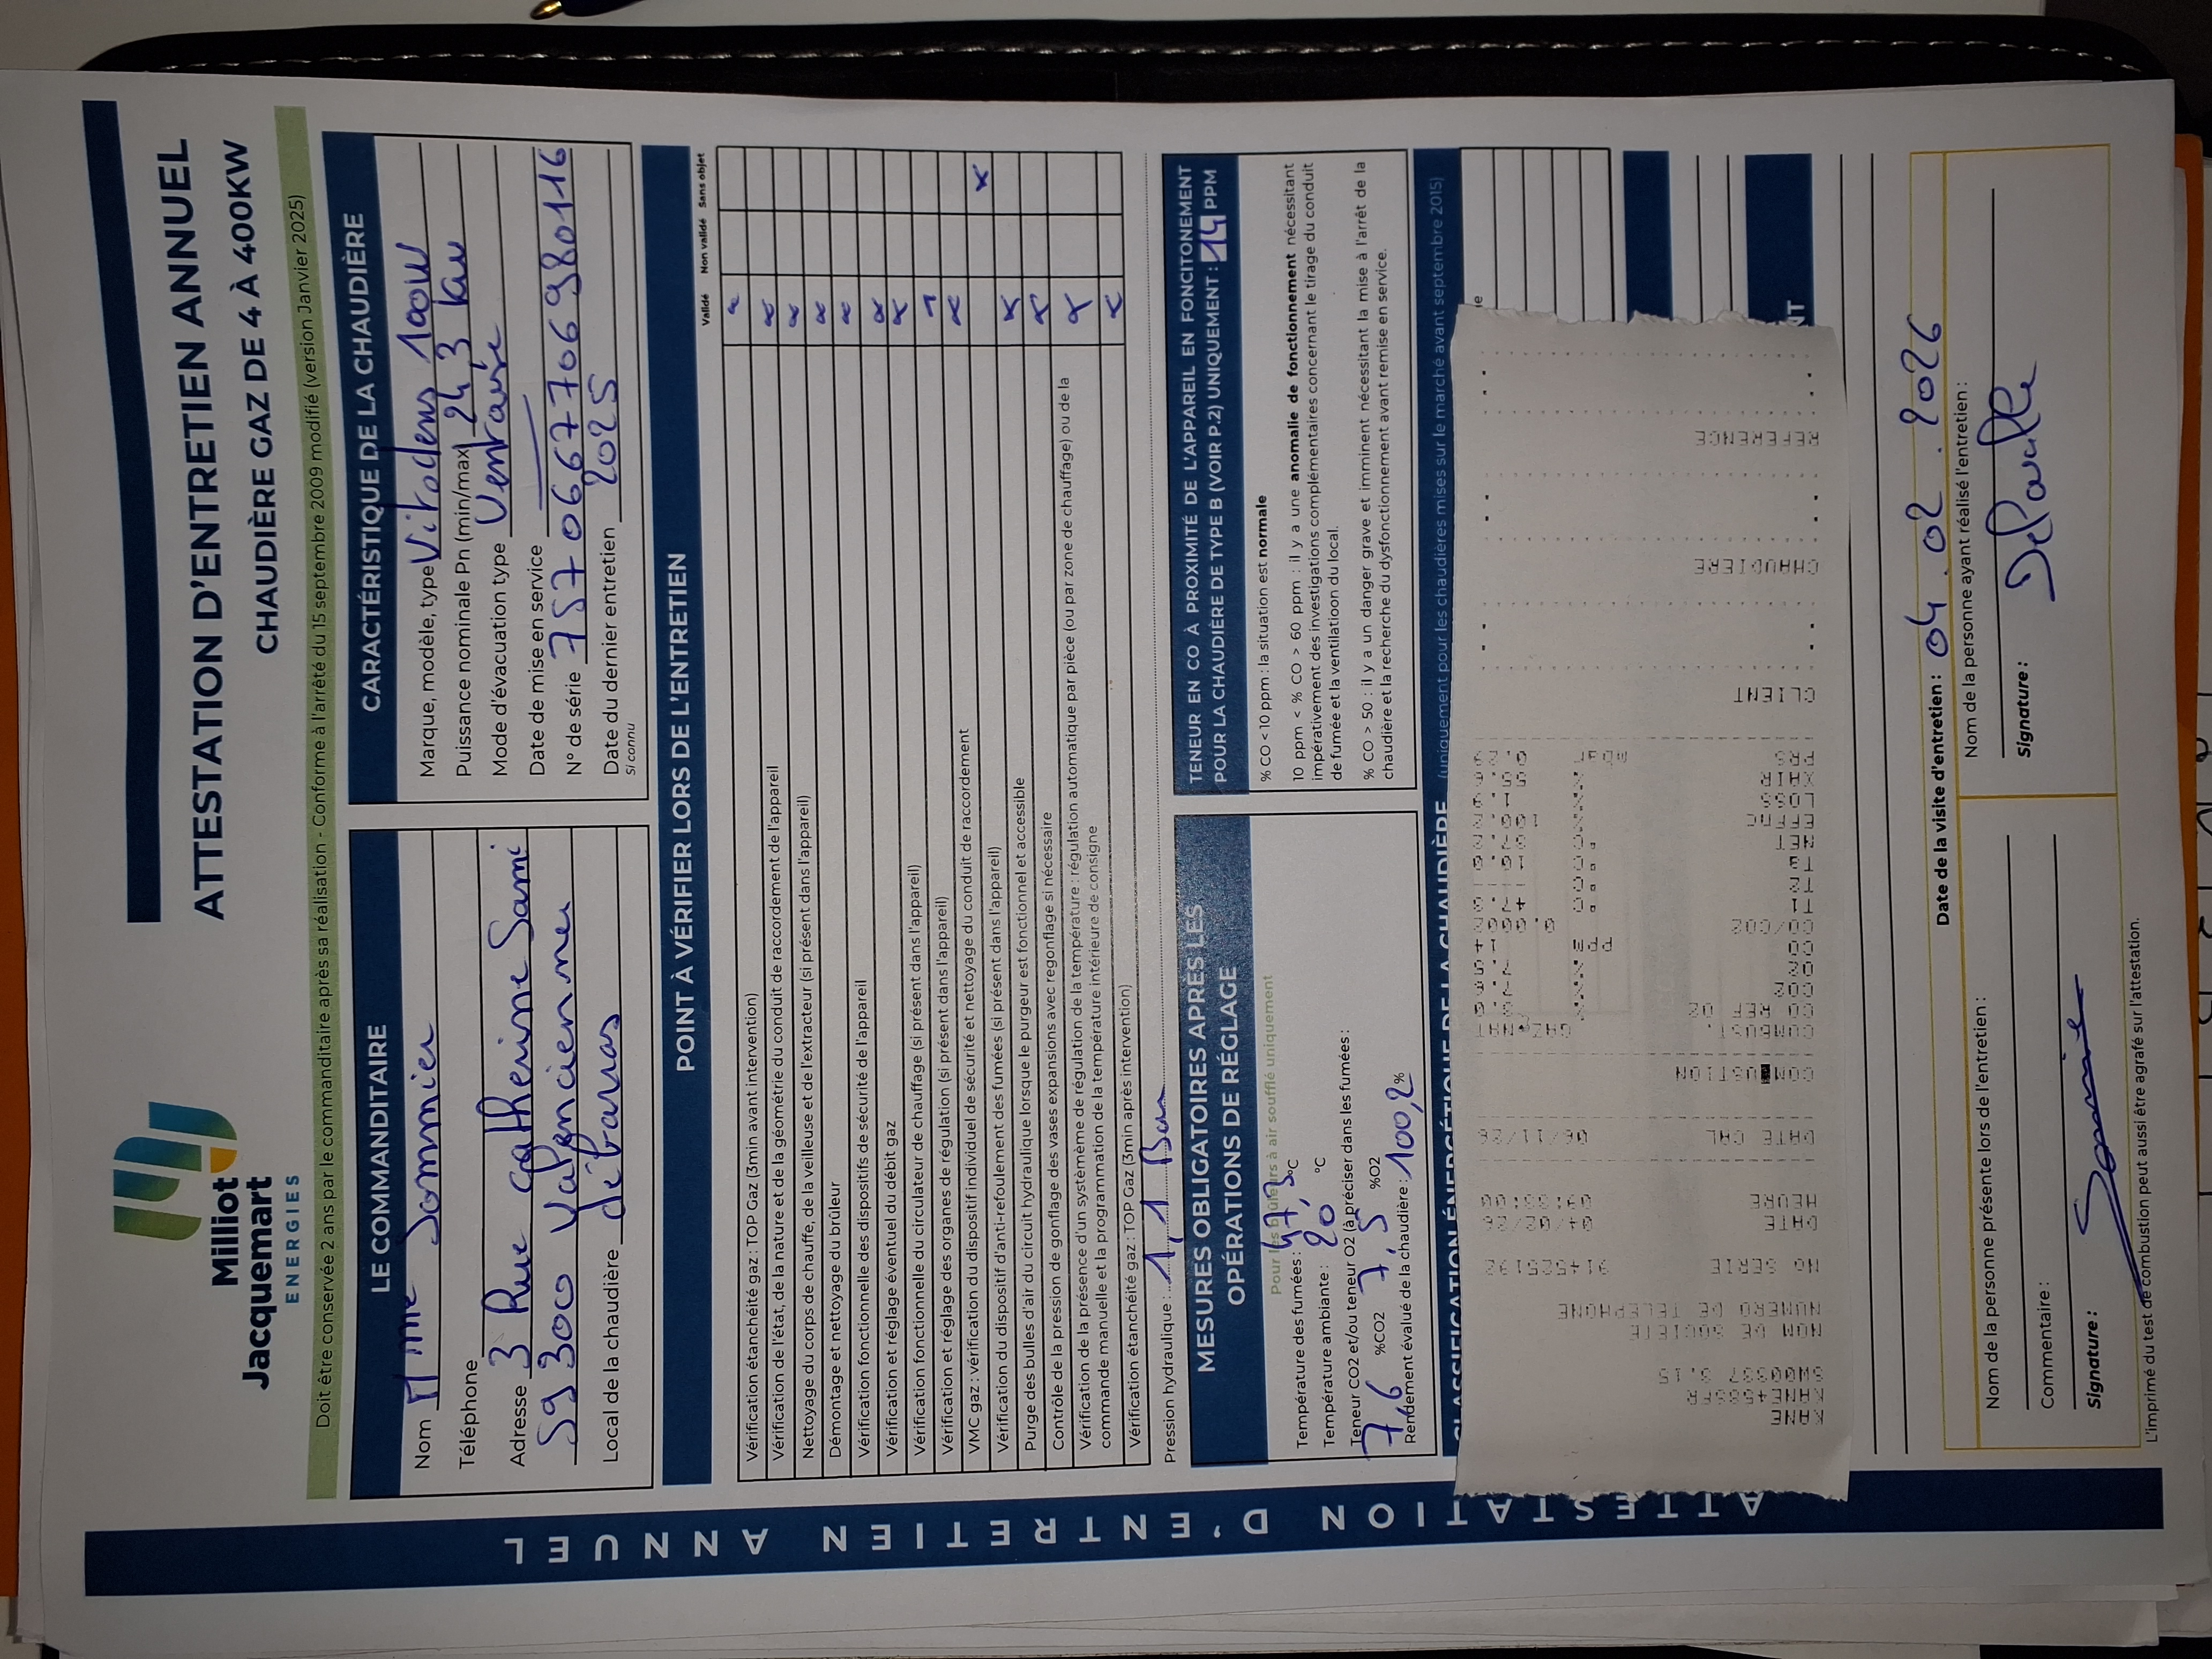 Milliot
Jacquemart
ENERGIES
ATTESTATION D'ENTRETIEN ANNUEL
CHAUDIÈRE GAZ DE 4 À 400KW
Doit être conservée 2 ans par le commanditaire après sa réalisation - Conforme à l'arrêté du 15 septembre 2009 modifié (version Janvier 2025)
LE COMMANDITAIRE
Nom Mme Sommier
Téléphone
Adresse 3 Rue Catherine Sami
59300 Valenciennes
Local de la chaudière débarras
CARACTÉRISTIQUE DE LA CHAUDIÈRE
Marque, modèle, type Vitodens 100W
Puissance nominale Pn (min/max) 24 3 kw
Mode d'évacuation type Ventouse
Date de mise en service
N° de série 7570667706980116
Date du dernier entretien 2025
Si connu
POINT À VÉRIFIER LORS DE L'ENTRETIEN
Validé Non validé Sans objet
Vérification étanchéité gaz : TOP Gaz (3min avant intervention) x
Vérification de l'état, de la nature et de la géométrie du conduit de raccordement de l'appareil x
Nettoyage du corps de chauffe, de la veilleuse et de l'extracteur (si présent dans l'appareil) x
Démontage et nettoyage du brûleur x
Vérification fonctionnelle des dispositifs de sécurité de l'appareil x
Vérification et réglage éventuel du débit gaz x
Vérification fonctionnelle du circulateur de chauffage (si présent dans l'appareil) x
Vérification et réglage des organes de régulation (si présent dans l'appareil) x
VMC gaz : vérification du dispositif individuel de sécurité et nettoyage du conduit de raccordement x
Vérification du dispositif d'anti-refoulement des fumées (si présent dans l'appareil) x
Purge des bulles d'air du circuit hydraulique lorsque le purgeur est fonctionnel et accessible x
Contrôle de la pression de gonflage des vases expansions avec regonflage si nécessaire x
Vérification de la présence d'un systèmème de régulation de la température : régulation automatique par pièce (ou par zone de chauffage) ou de la
commande manuelle et la programmation de la température intérieure de consigne
Vérification étanchéité gaz : TOP Gaz (3min après intervention) x
Pression hydraulique : 1,1 Bar
MESURES OBLIGATOIRES APRÈS LES
OPÉRATIONS DE RÉGLAGE
Pour les brûleurs à air soufflé uniquement
Température des fumées : 47,3 °C
Température ambiante : 20 °C
Teneur CO2 et/ou teneur O2 (à préciser dans les fumées :
7,6 %CO2 7,5 %O2
Rendement évalué de la chaudière : 100,2 %
TENEUR EN CO À PROXIMITÉ DE L'APPAREIL EN FONCITONEMENT
POUR LA CHAUDIÈRE DE TYPE B (VOIR P.2) UNIQUEMENT : 14 PPM
% CO < 10 ppm : la situation est normale
10 ppm < % CO > 60 ppm : il y a une anomalie de fonctionnement nécessitant
impérativement des investigations complémentaires concernant le tirage du conduit
de fumée et la ventilatioon du local.
% CO > 50 : il y a un danger grave et imminent nécessitant la mise à l'arrêt de la
chaudière et la recherche du dysfonctionnement avant remise en service.
CLASSIFICATION ÉNERGÉTIQUE DE LA CHAUDIÈRE (uniquement pour les chaudières mises sur le marché avant septembre 2015)
KANE
KANE458SFR
SW00337 3.15
NOM DE SOCIETE
NUMERO DE TELEPHONE
NO SERIE 914525192
DATE 04/02/26
HEURE 09:33:00
DATE CAL 06/11/26
COMBUSTION
COMBUST. GAZ NAT
CO REF O2
CO2 %
O2 %
CO ppm 14
CO/CO2 0.0002
T1 °C
TR °C
TW °C
NET °C
ETTPC %
LOSS %
XAIR %
PRS mbar
CLIENT
CHAUDIERE
REFERENCE
Date de la visite d'entretien : 04.02.2026
Nom de la personne présente lors de l'entretien :
Commentaire :
Signature :
Nom de la personne ayant réalisé l'entretien :
Signature :
L'imprimé du test de combustion peut aussi être agrafé sur l'attestation.
ATTESTATION D'ENTRETIEN ANNUEL